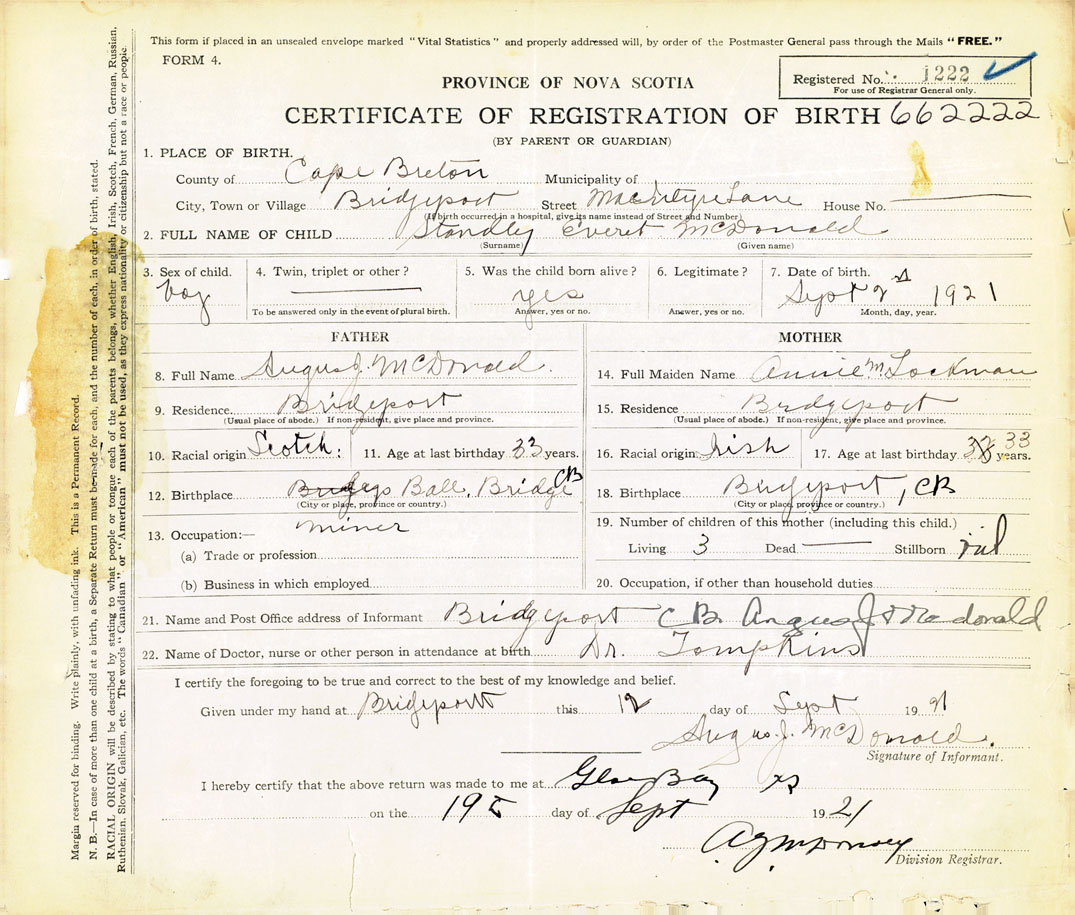 This form if placed in an unsealed envelope marked "Vital Statistics" and properly addressed will, by order of the Postmaster General pass through the Mails "FREE."
FORM 4.
Registered No. 1222
For use of Registrar General only.
PROVINCE OF NOVA SCOTIA
CERTIFICATE OF REGISTRATION OF BIRTH 662222
(BY PARENT OR GUARDIAN)
1. PLACE OF BIRTH.
County of Cape Breton Municipality of
City, Town or Village Bridgeport Street MacIntyre Lane House No.
(If birth occurred in a hospital, give its name instead of Street and Number)
2. FULL NAME OF CHILD Standley Everet McDonald
(Surname) (Given name)
3. Sex of child. boy
4. Twin, triplet or other?
To be answered only in the event of plural birth.
5. Was the child born alive? yes
Answer, yes or no.
6. Legitimate?
Answer, yes or no.
7. Date of birth. Sept 2 1921
Month, day, year.
FATHER
8. Full Name Angus J. McDonald.
9. Residence Bridgeport
(Usual place of abode.) If non-resident, give place and province.
10. Racial origin Scotch: 11. Age at last birthday 33 years.
12. Birthplace Ball, Bridge CB
(City or place, province or country.)
13. Occupation:— miner
(a) Trade or profession
(b) Business in which employed
MOTHER
14. Full Maiden Name Annie M Lockman
15. Residence Bridgeport
(Usual place of abode.) If non-resident, give place and province.
16. Racial origin: Irish 17. Age at last birthday 33 years.
18. Birthplace Bridgeport, CB
(City or place, province or country.)
19. Number of children of this mother (including this child.)
Living 3 Dead Stillborn nil
20. Occupation, if other than household duties
21. Name and Post Office address of Informant Bridgeport CB. Angus J McDonald
22. Name of Doctor, nurse or other person in attendance at birth Dr. Tompkins
I certify the foregoing to be true and correct to the best of my knowledge and belief.
Given under my hand at Bridgeport this 12 day of Sept 1921
Angus. J. McDonald.
Signature of Informant.
I hereby certify that the above return was made to me at Glace Bay NS
on the 19 day of Sept 1921
Division Registrar.
Margin reserved for binding. Write plainly, with unfading ink. This is a Permanent Record.
N. B.—In case of more than one child at a birth, a Separate Return must be made for each, and the number of each, in order of birth, stated.
RACIAL ORIGIN will be described by stating to what people or tongue each of the parents belongs, whether English, Irish, Scotch, French, German, Russian,
Ruthenian, Slovak, Galician, etc. The words "Canadian" or "American" must not be used, as they express nationality or citizenship but not a race or people.